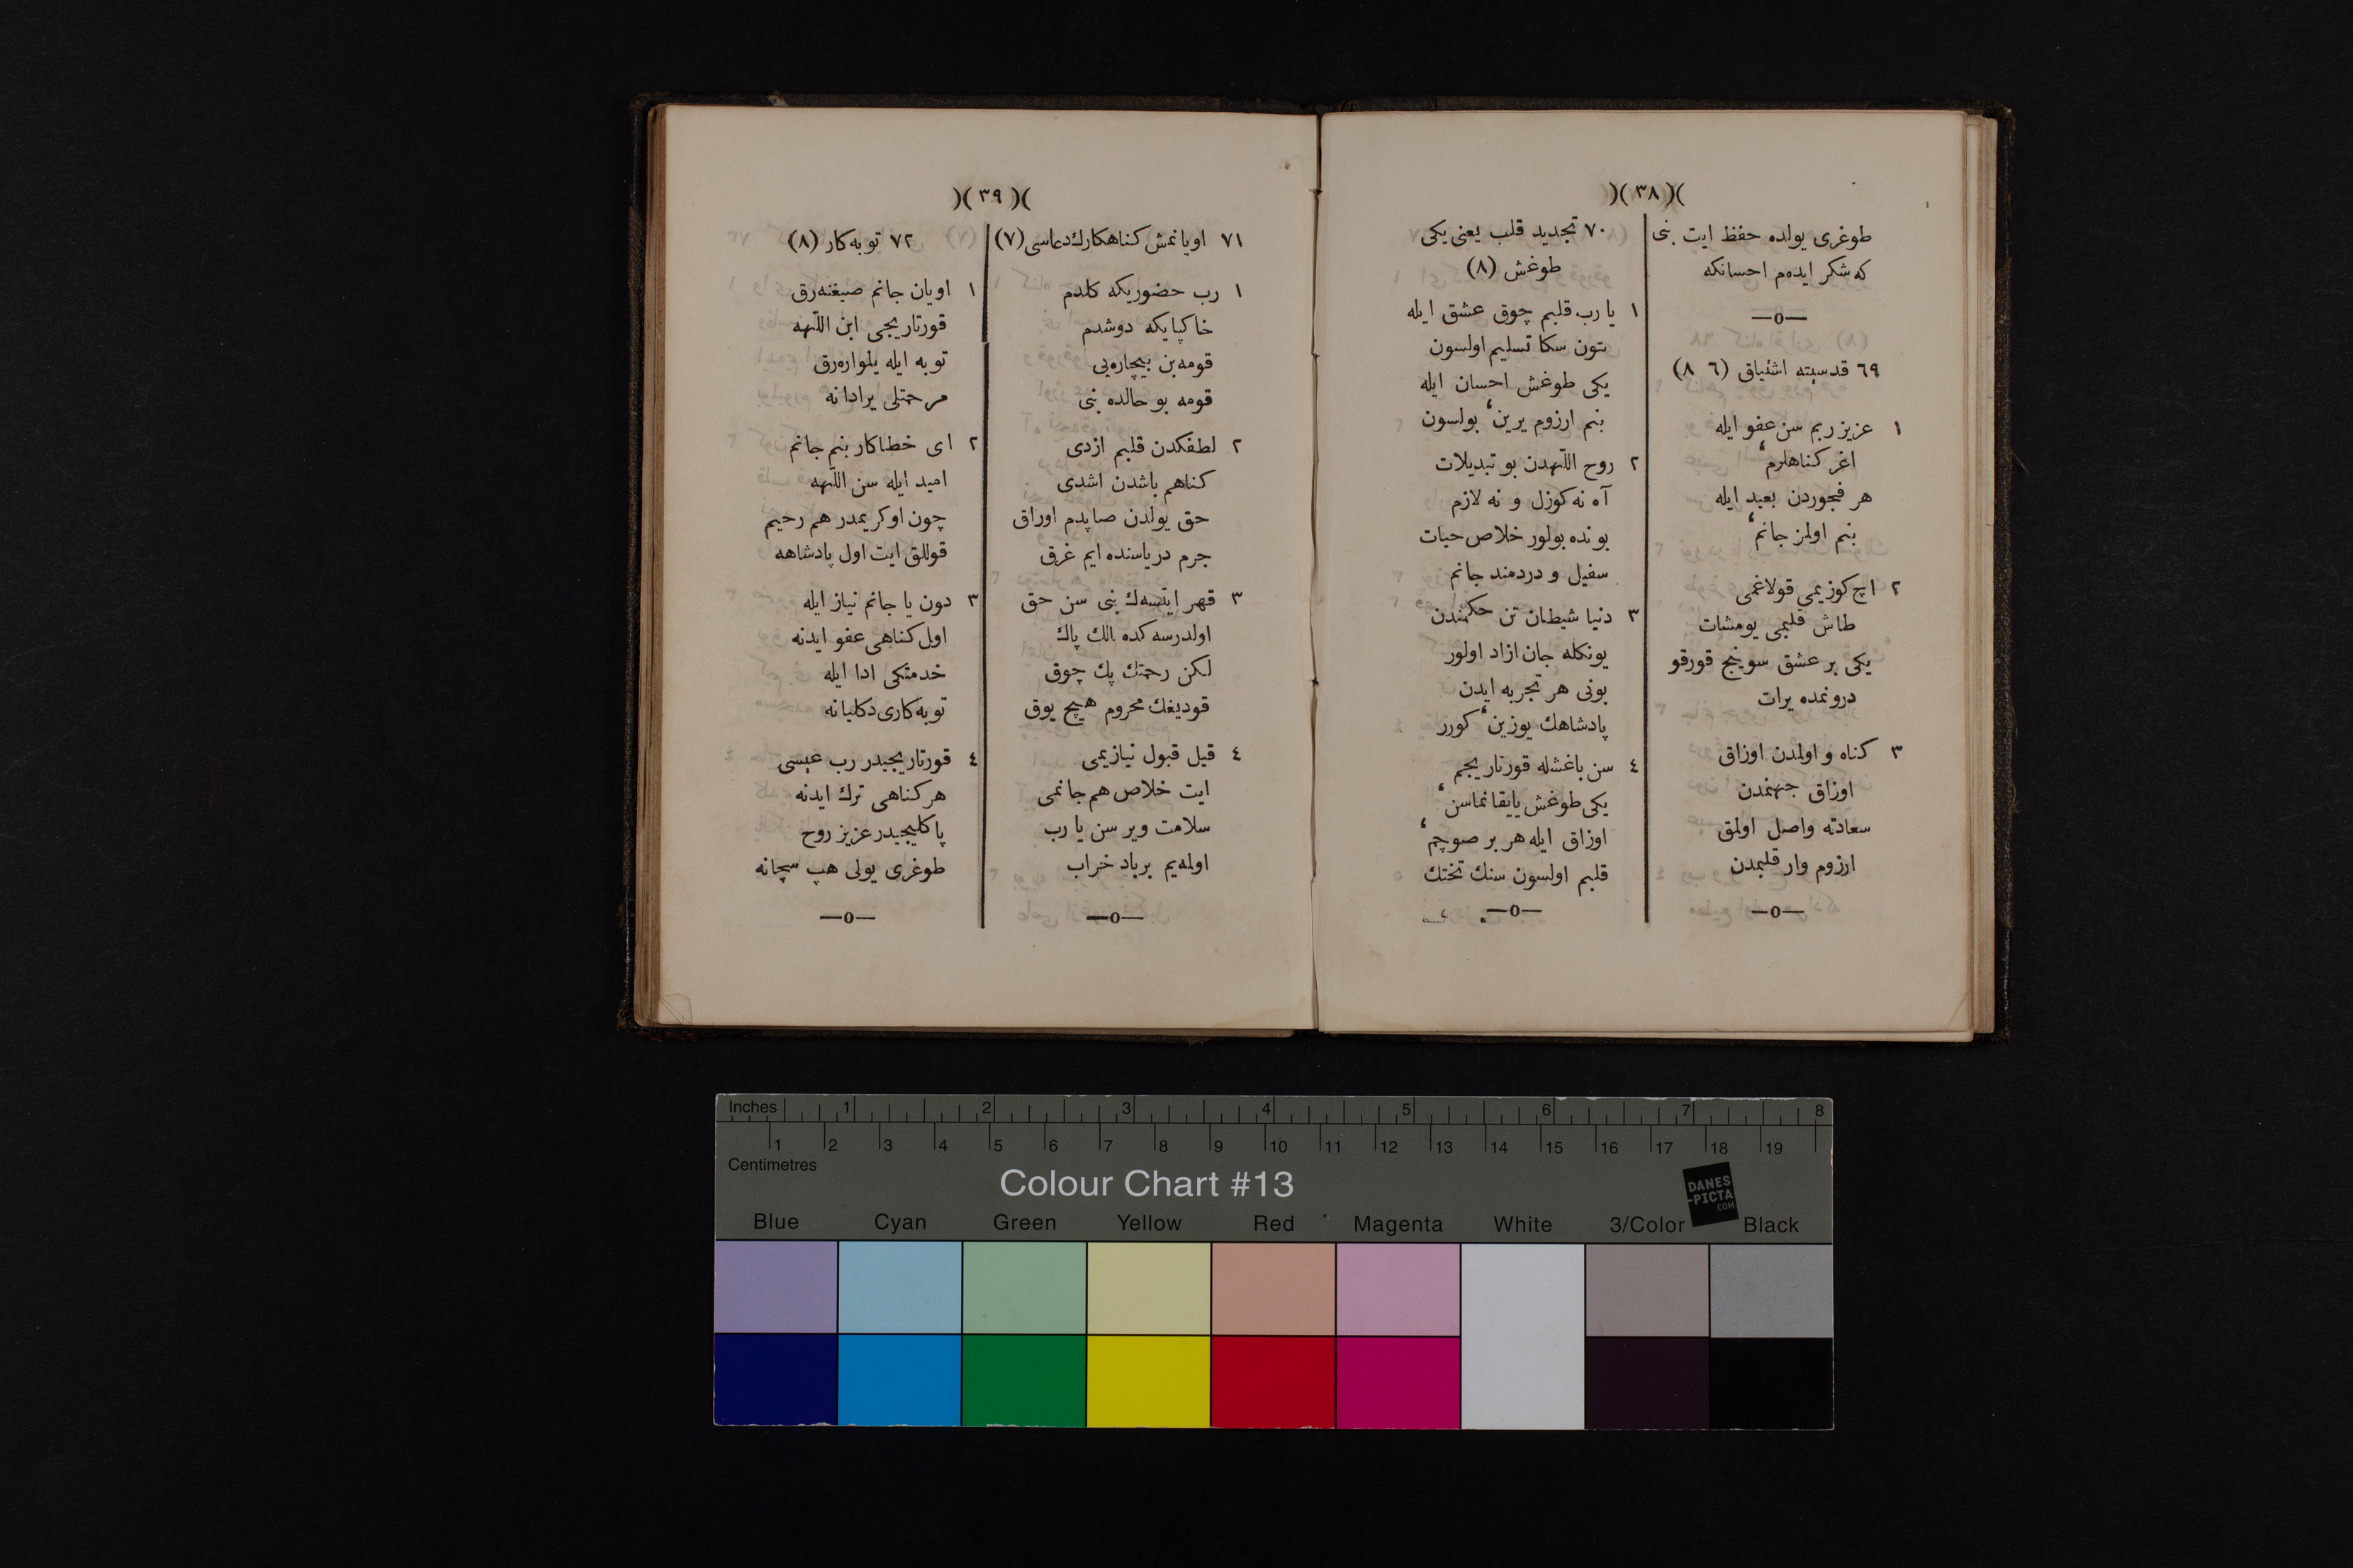 )( ٣٨ )(
طوغری یولده حفظ ایت بنی
که شکر ایده‌م احسانکه
—o—
٦٩ قدسیته اشتیاق (٦ ٨)
١ عزیز ربم سن عفو ایله
اغر کناهلرم‘
هر فجوردن بعید ایله
بنم اولمز جانم‘
٢ اچ کوزیمی قولاغمی
طاش قلبمی یومشات
یکی بر عشق سوینج قورقو
درونمده یرات
٣ کناه و اولمدن اوزاق
اوزاق جهنمدن
سعادته واصل اولمق
ارزوم وار قلبمدن
—o—
٧٠ تجدید قلب یعنی یکی
طوغش (٨)
١ یا رب قلبم چوق عشق ایله
بتون سکا تسلیم اولسون
یکی طوغش احسان ایله
بنم ارزوم یرین‘ بولسون
٢ روح اللّهدن بو تبدیلات
آه نه کوزل و نه لازم
بونده بولور خلاص حیات
سفیل و دردمند جانم
٣ دنیا شیطان تن حکمندن
یونکله جان ازاد اولور
بونی هر تجربه ایدن
پادشاهك یوزین‘ کورر
٤ سن باغشله قورتاریجم
یکی طوغش یایقانماسن‘
اوزاق ایله هر بر صوچم‘
قلبم اولسون سنك تختك
—o—
)( ٣٩ )(
٧١ اویانمش کناهکارك دعاسی (٧)
١ رب حضوریکه کلدم
خاکپایکه دوشدم
قومه بن بیچاره‌یی
قومه بو حالده بنی
٢ لطفکدن قلبم ازدی
کناهم باشدن اشدی
حق یولدن صاپدم اوراق
جرم دریاسنده ایم غرق
٣ قهر ایتسه‌ك بنی سن حق
اولدرسه کده الك پاك
لکن رحمتك پك چوق
قودیغك محروم هیچ یوق
٤ قیل قبول نیازیمی
ایت خلاص هم جانمی
سلامت ویر سن یا رب
اولمه‌یم برباد خراب
—o—
٧٢ توبه‌کار (٨)
١ اویان جانم صیغنه‌رق
قورتاریجی ابن اللّهه
توبه ایله یلواره‌رق
مرحمتلی یرادانه
٢ ای خطاکار بنم جانم
امید ایله سن اللّهه
چون او کریمدر هم رحیم
قوللق ایت اول پادشاهه
٣ دون یا جانم نیاز ایله
اول کناهی عفو ایدنه
خدمتکی ادا ایله
توبه‌کاری دکلیانه
٤ قورتاریجیدر رب عیسی
هر کناهی ترك ایدنه
پاکلیجیدر عزیز روح
طوغری یولی هپ سچانه
—o—
Inches 1 2 3 4 5 6 7 8
1 2 3 4 5 6 7 8 9 10 11 12 13 14 15 16 17 18 19
Centimetres
Colour Chart #13
DANES
-PICTA
.COM
Blue Cyan Green Yellow Red Magenta White 3/Color Black